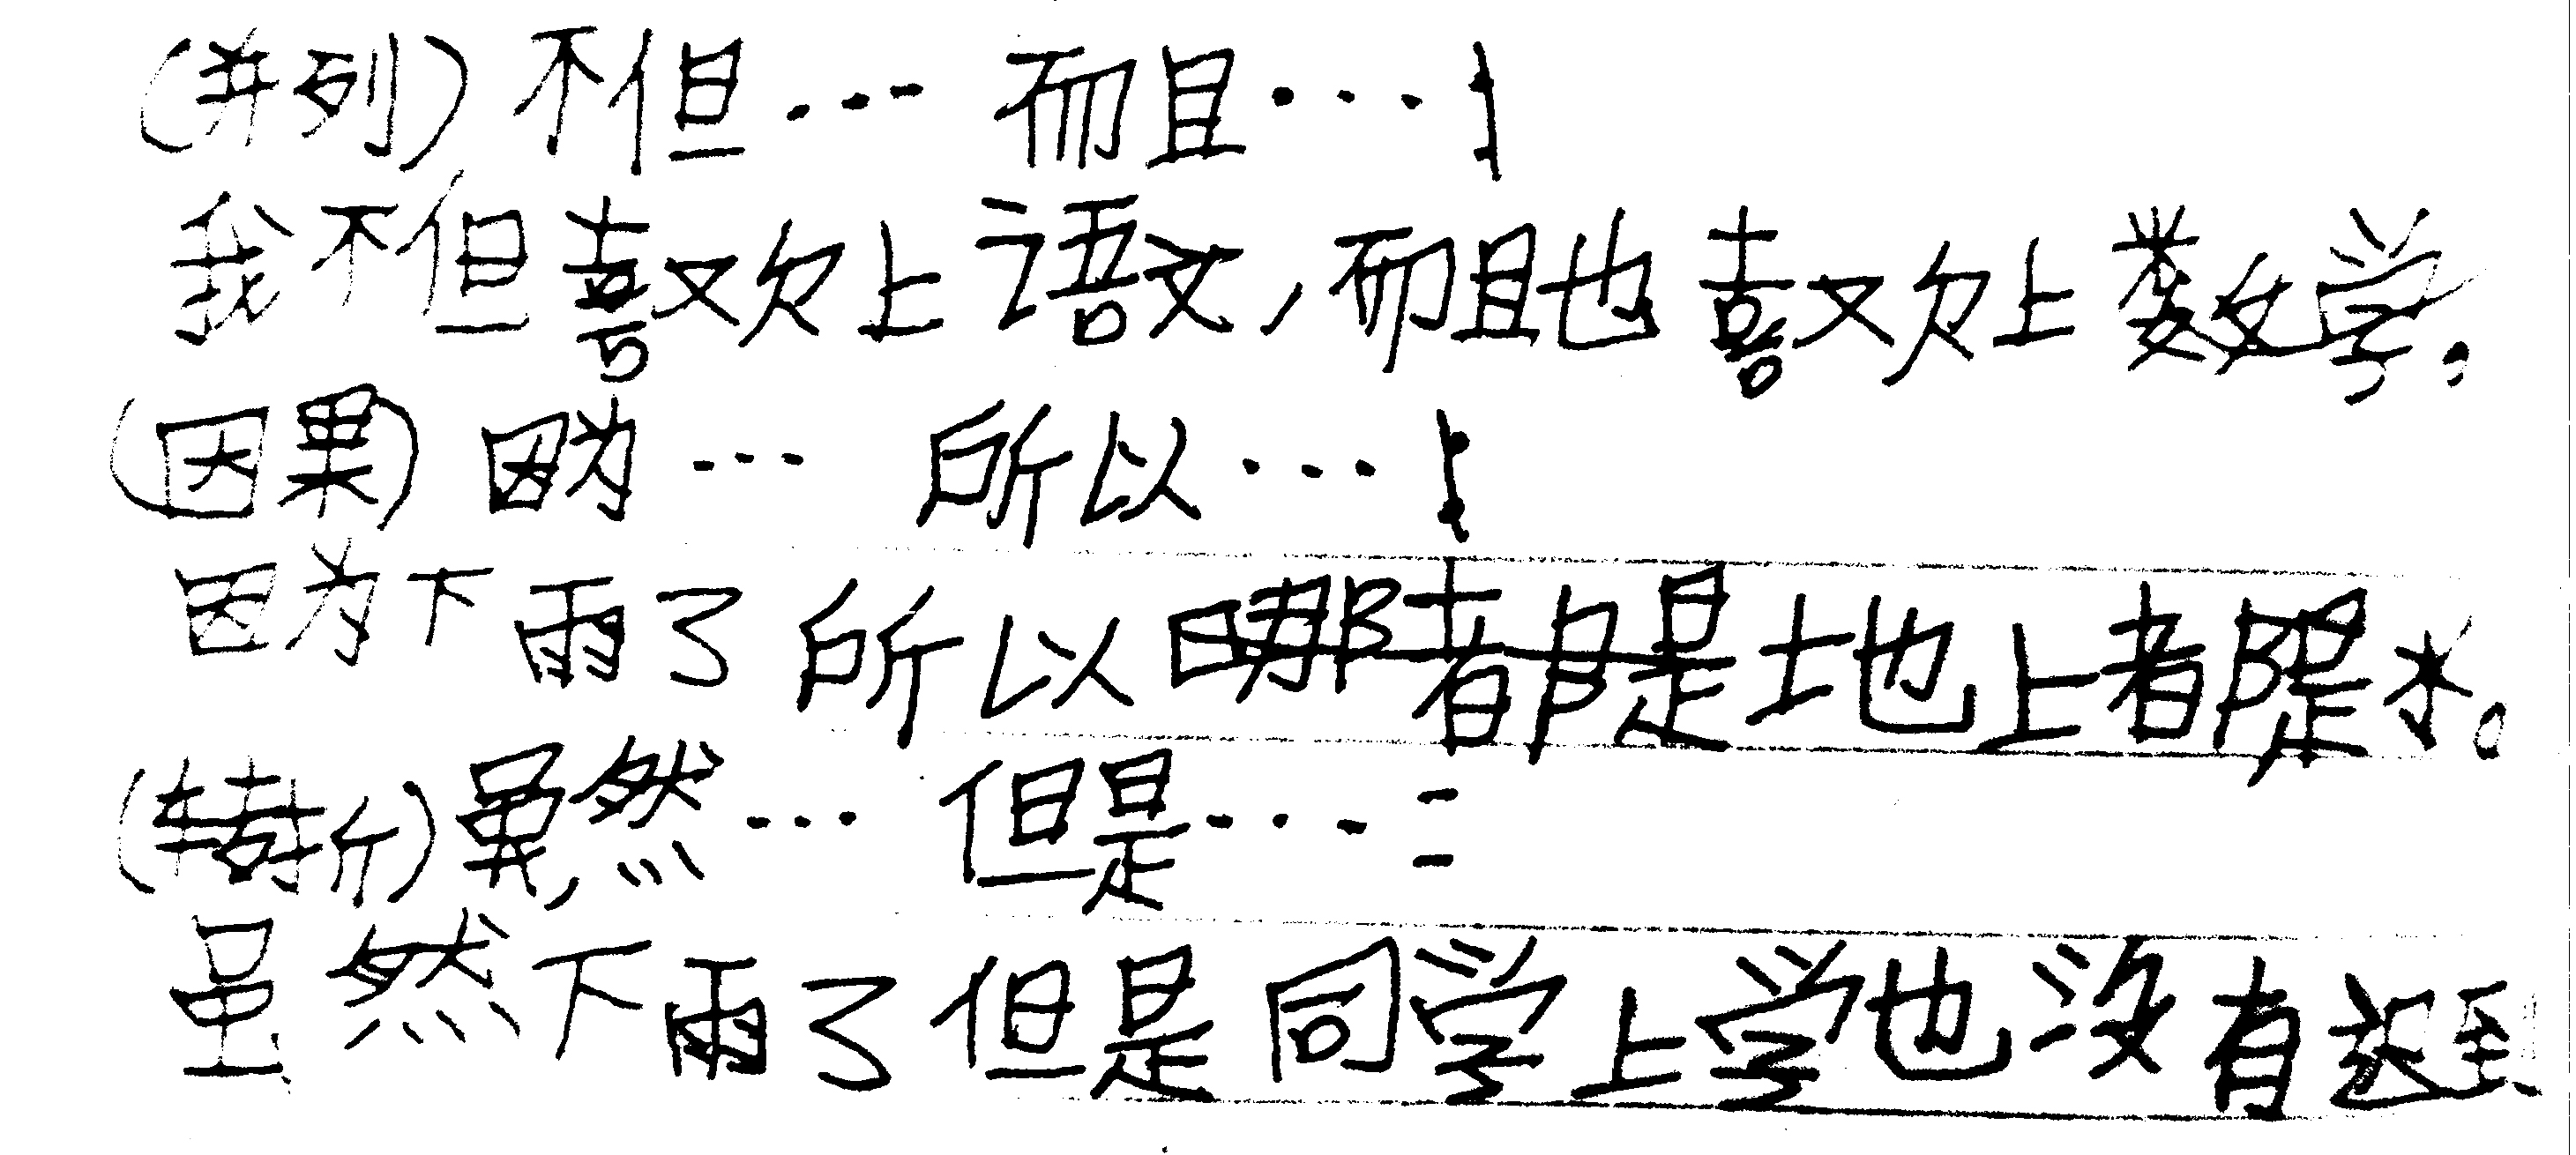 (并列) 不但… 而且…:
我不但喜欢上语文,而且也喜欢上数学。
(因果) 因为… 所以…:
因为下雨了所以哪都是地上都是水。
(转折) 虽然… 但是…:
虽然下雨了但是同学上学也没有迟到